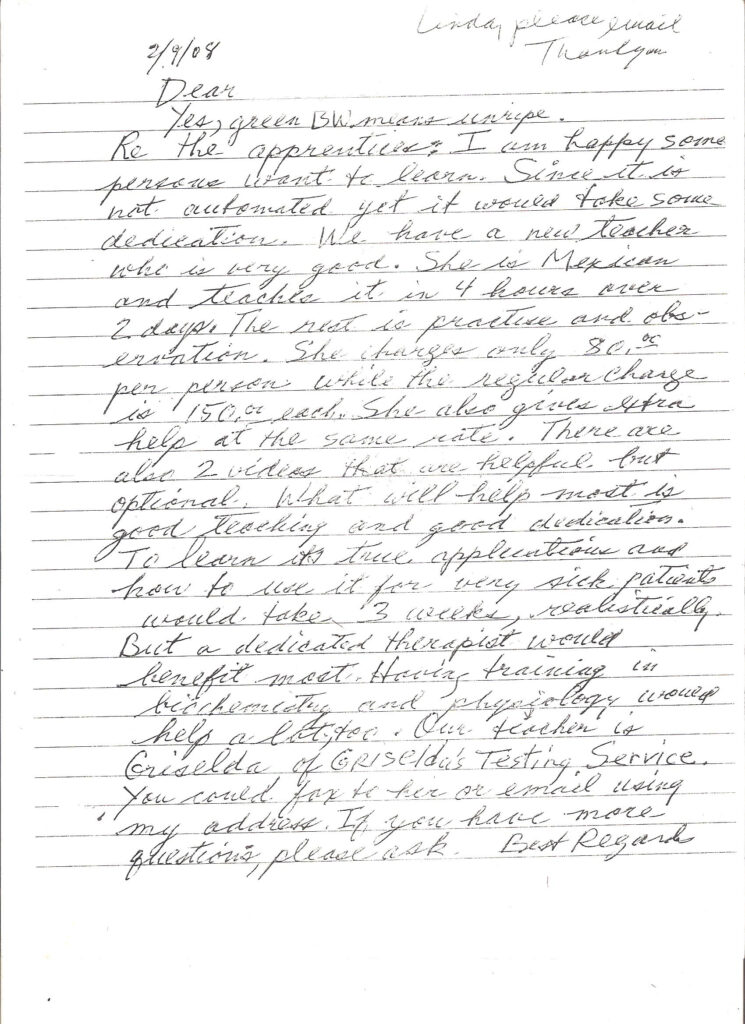 Linda, please email
Thankyou
2/9/08
Dear
Yes, green BW. means unripe.
Re the apprentices: I am happy some
persons want to learn. Since it is
not automated yet it would take some
dedication. We have a new teacher
who is very good. She is Mexican
and teaches it in 4 hours over
2 days. The rest is practise and obs-
ervation. She charges only 80.00
per person while the regular charge
is 150.00 each. She also gives extra
help at the same rate. There are
also 2 videos that are helpful but
optional. What will help most is
good teaching and good dedication.
To learn its true applications and
how to use it for very sick patients
would take 3 weeks, realistically.
But a dedicated therapist would
benefit most. Having training in
biochemistry and physiology would
help a lot, too. Our teacher is
Griselda of GRISElda's Testing Service.
You could fax to her or email using
my address. If you have more
questions, please ask. Best Regards